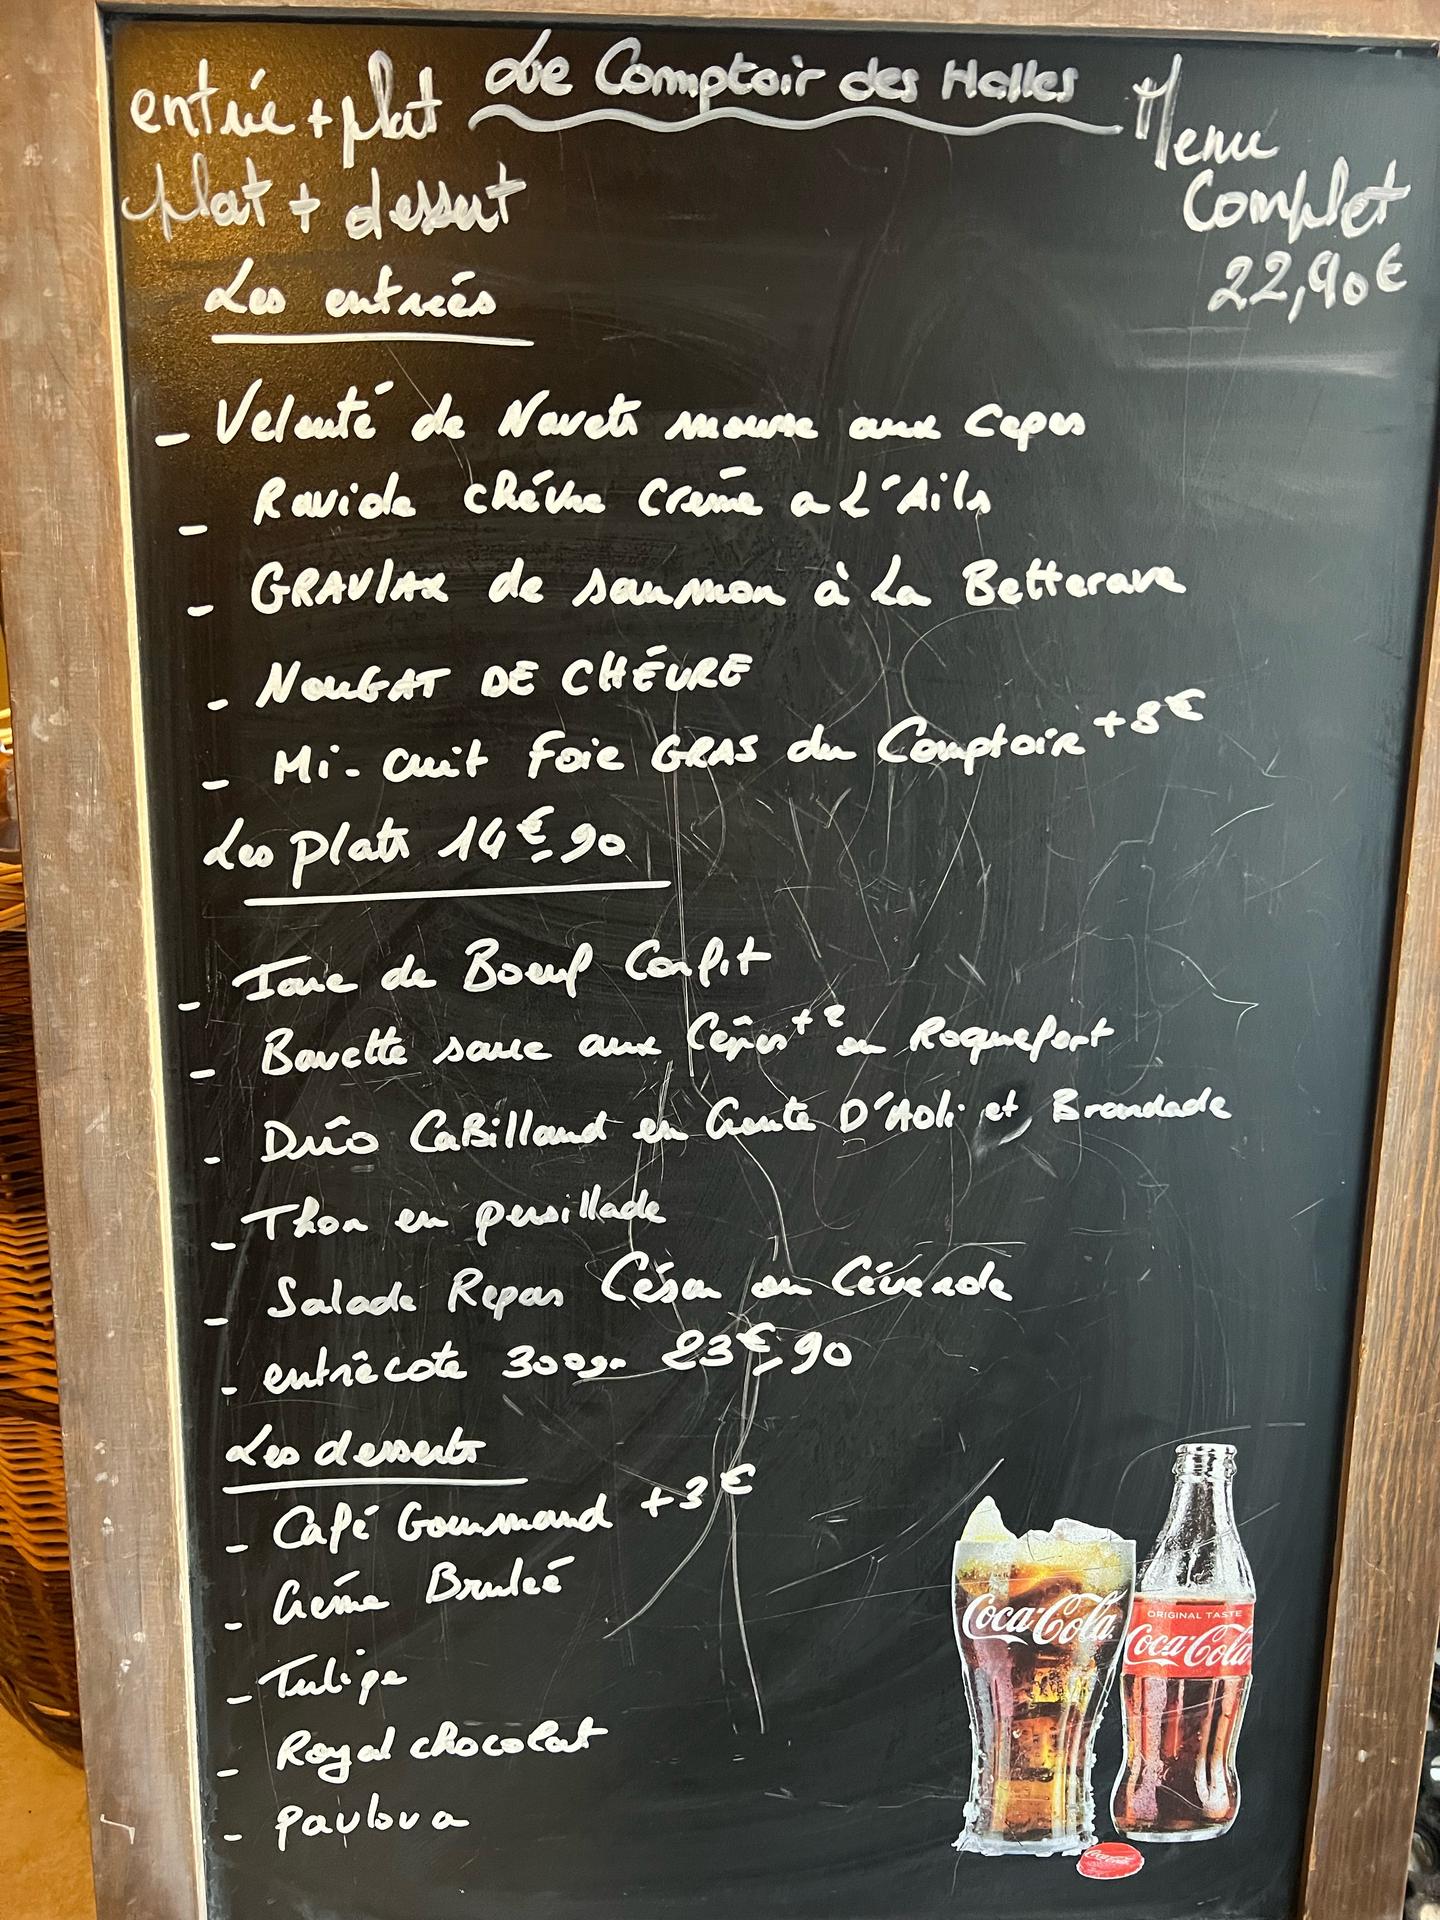 Le Comptoir des Halles
entrée + plat
plat + dessert
Menu
Complet
22,90€
Les entrées
- Velouté de Navets mousse aux Cepes
- Raviole chévre Créme a L'Ails
- GRAVlax de saumon à La Betterave
- NOUGAT DE CHÉVRE
- Mi-cuit Foie GRAS du Comptoir +8€
Les plats 14€90
- Joue de Boeuf Confit
- Bavette sauce aux Cêpes +2 ou Roquefort
- Dûo CaBillaud en Croute D'Aoli et Brandade
- Thon en persillade
- Salade Repas César ou Cévenole
- entrêcote 300gr 23€90
Les desserts
- Café Gourmand +3€
- Créme Bruleé
- Tulipe
- Royal chocolat
- pavlova
Coca-Cola
ORIGINAL TASTE
Coca-Cola
Coca-Cola